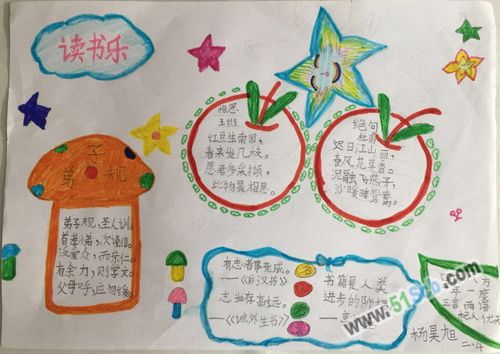 读书乐
弟子规
弟子规,圣人训。
首孝弟,次谨信。
泛爱众,而亲仁。
有余力,则学文。
父母呼,应勿缓。
相思
王维
红豆生南国,
春来发几枝。
愿君多采撷,
此物最相思。
绝句
杜甫
迟日江山丽,
春风花草香。
泥融飞燕子,
沙暖睡鸳鸯。
有志者事竟成。
——《后汉书》
志当存高远。
——《诫外生书》
书籍是人类
进步的阶梯
www.51Scb.com
杨昊旭
二.4